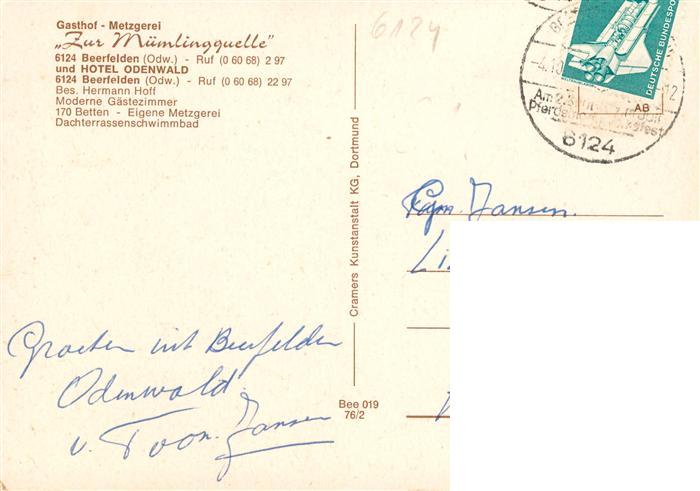 Gasthof - Metzgerei
„Zur Mümlingquelle"
6124 Beerfelden (Odw.) - Ruf (0 60 68) 2 97
und HOTEL ODENWALD
6124 Beerfelden (Odw.) - Ruf (0 60 68) 22 97
Bes. Hermann Hoff
Moderne Gästezimmer
170 Betten - Eigene Metzgerei
Dachterrassenschwimmbad
6124
DEUTSCHE BUNDESPO
-4.10
12
Am 2.
AB
6124
Cramers Kunstanstalt KG, Dortmund
Fam. Jansen.
Li
Groeten uit Beerfelden
Odenwald.
v. Toon Jansen
Bee 019
76/2